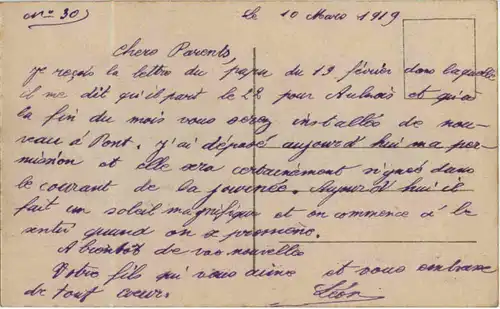 No 30)
Le 10 Mars 1919
Chers Parents,
Je reçois la lettre du papa du 13 février dans laquelle
il me dit qu'il part le 22 pour Aulnois et qu'à
la fin du mois vous serez installés de nou-
veau à Pont. J'ai déposé aujourd'hui ma per-
mission et elle sera certainement signée dans
le courant de la journée. Aujourd'hui il
fait un soleil magnifique et on commence à le
sentir quand on se promène.
A bientôt de vos nouvelles
Votre fils qui vous aime et vous embrasse
de tout coeur.
Léon